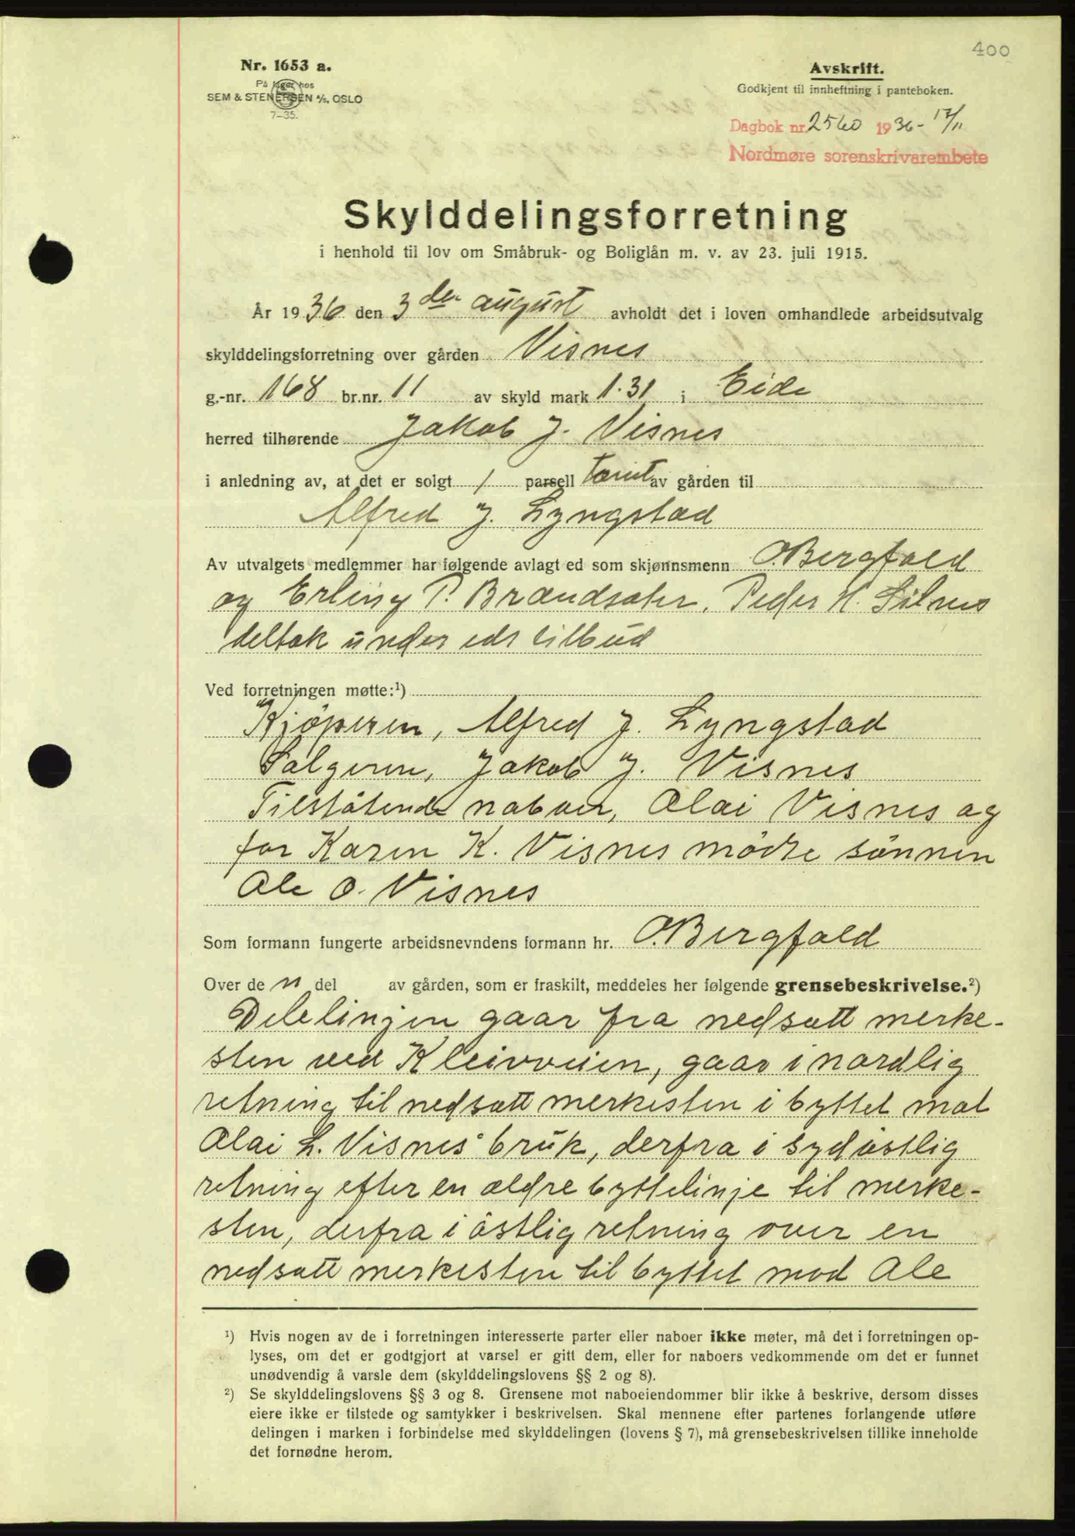 400
Nr. 1653 a.
På lager hos
SEM & STENERSEN A/S, OSLO
7-35.
Avskrift.
Godkjent til innheftning i panteboken.
Dagbok nr. 2560 1936 - 17/11
Nordmøre sorenskrivarembete
Skylddelingsforretning
i henhold til lov om Småbruk- og Boliglån m. v. av 23. juli 1915.
År 1936 den 3 den august avholdt det i loven omhandlede arbeidsutvalg
skylddelingsforretning over gården Visnes
g.-nr. 168 br.nr. 11 av skyld mark 1.31 i Eide
herred tilhørende Jakob J. Visnes
i anledning av, at det er solgt 1 parsell tomt av gården til
Alfred J. Lyngstad
Av utvalgets medlemmer har følgende avlagt ed som skjønnsmenn O. Bergfald
og Erling P. Brandsæter, Peder H. Silnes
deltok under eds tilbud
Ved forretningen møtte:¹)
Kjöperen, Alfred J. Lyngstad
Selgeren, Jakob J. Visnes
Tilstötende naboer, Olai Visnes og
for Karen K. Visnes mödte sönnen
Ole O. Visnes
Som formann fungerte arbeidsnevndens formann hr. O. Bergfald
Over de n del av gården, som er fraskilt, meddeles her følgende grensebeskrivelse.²)
Delelinjen gaar fra nedsatt merke-
sten ved Kleivveien, gaar i nordlig
retning til nedsatt merkesten i byttet mot
Olai L. Visnes' bruk, derfra i sydöstlig
retning efter en ældre byttelinje til merke-
sten, derfra i östlig retning over en
nedsatt merkesten til byttet mod Ole
¹) Hvis nogen av de i forretningen interesserte parter eller naboer ikke møter, må det i forretningen op-
lyses, om det er godtgjort at varsel er gitt dem, eller for naboers vedkommende om det er funnet
unødvendig å varsle dem (skylddelingslovens §§ 2 og 8).
²) Se skylddelingslovens §§ 3 og 8. Grensene mot naboeiendommer blir ikke å beskrive, dersom disses
eiere ikke er tilstede og samtykker i beskrivelsen. Skal mennene efter partenes forlangende utføre
delingen i marken i forbindelse med skylddelingen (lovens § 7), må grensebeskrivelsen tillike inneholde
det fornødne herom.